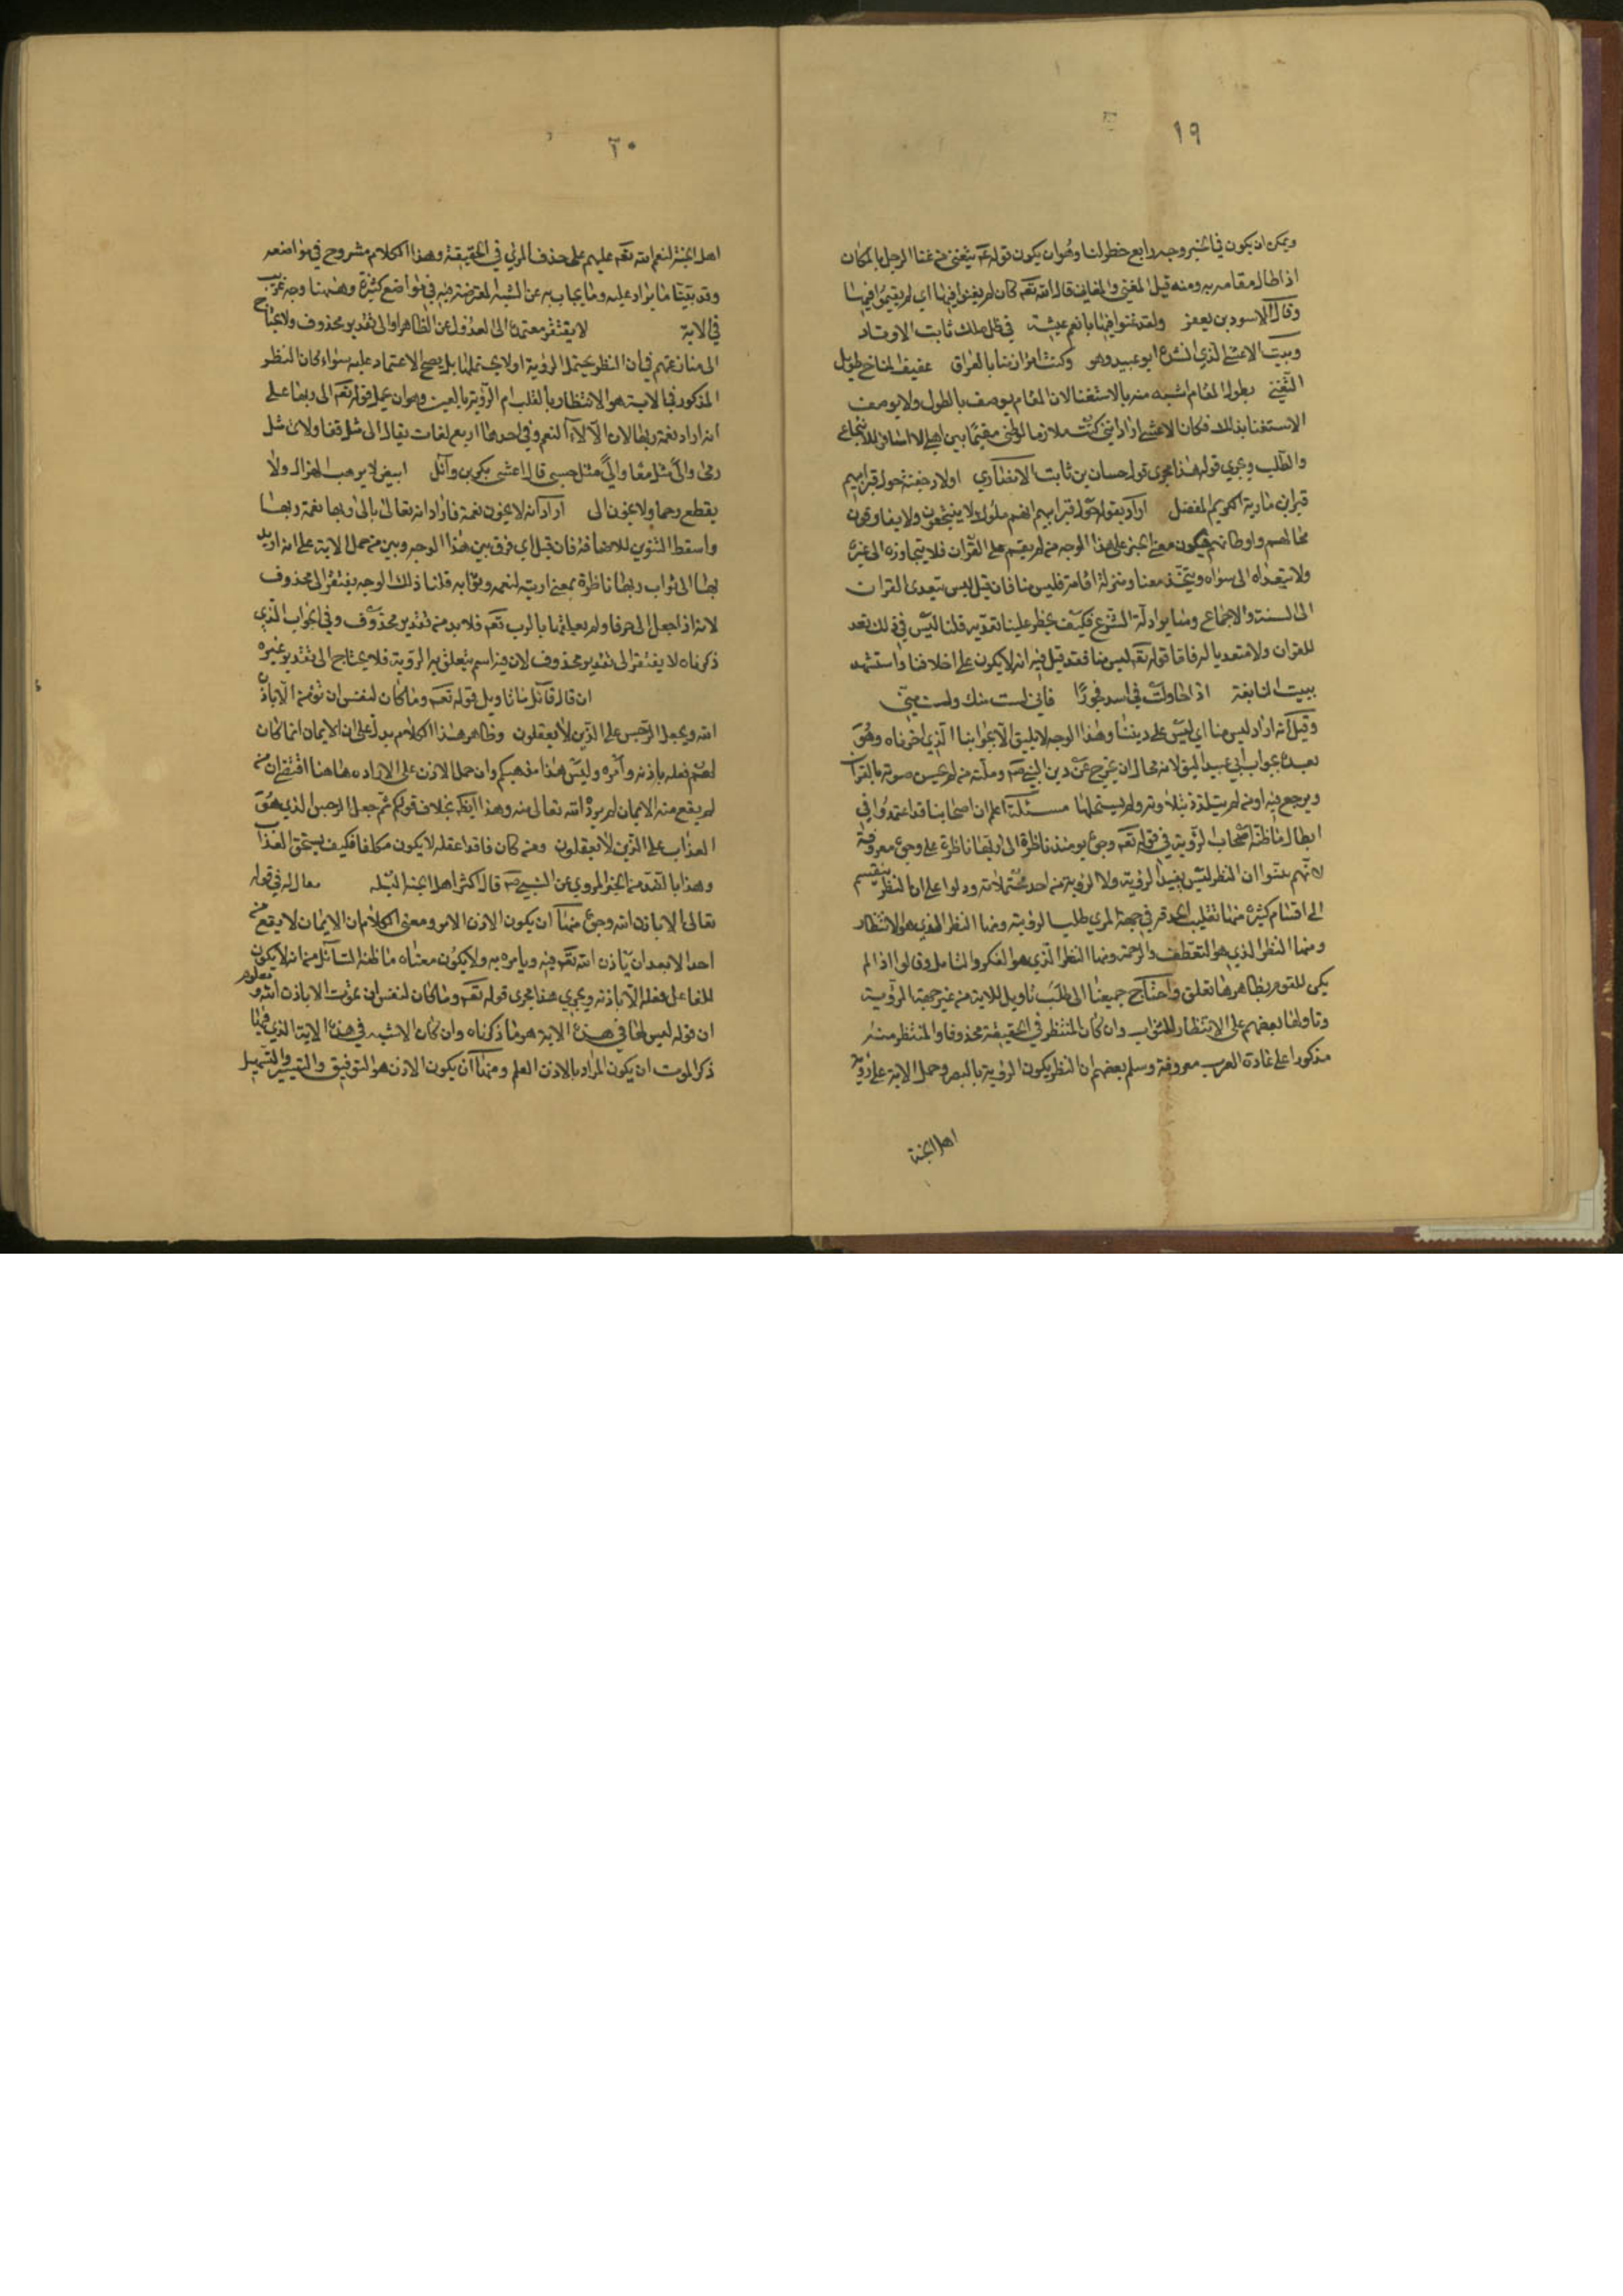 ١٩
ويمكن ان يكون في الخبر وجه رابع خطر لنا وهو ان يكون قوله عم يتغنى من غنا الرجل بالمكان
اذا طال مقامه به ومنه قيل المغنى والمغاني قال الله تعه كان لم يغنوا فيها اي لم يقيموا فيها
وقال الاسود بن يعفر ولقد غنوا فيها بانعم عيشة في ظل ملك ثابت الاوتاد
وبيت الاعشى الذي انشده ابو عبيد وهو وكنت امرا زمنا بالعراق عفيف المناخ طويل
التغني بطول المقام اشبه منه بالاستغنا لان المقام يوصف بالطول ولا يوصف
الاستغنا بذلك فكان الاعشى اراد انني كنت ملازما لوطني مقيما بين اهلي لا اسافر للانتجاع
والطلب ويجري قوله هذا مجرى قول حسان بن ثابت الانصاري اولاد جفنة حول قبر ابيهم
قبر ابن مارية الكريم المفضل اراد بقوله حول قبر ابيهم انهم ملوك لا ينتجعون ولا يفارقون
محالهم واوطانهم فيكون معنى الخبر على هذا الوجه من لم يقم على القرآن فلا يتجاوزه الى غيره
ولا يتعداه الى سواه ويتخذه معنا ومنزلة اقامة فليس منا فان قيل ليس يتعدى القران
الى السنة والاجماع وسايرادلة الشرع فكيف يحظر علينا تعديه قلنا ليس في ذلك تعد
للقران ولا متعديا له فاما قوله تعه ليس منا فقد قيل فيه انه لا يكون على اخلاقنا واستشهد
ببيت النابغة اذا حاولت في اسد فجورا فاني لست منك ولست مني
وقيل انه اراد ليس منا اي ليس على ديننا وهذا الوجه لا يليق الا بجوابنا الذي اخرناه وهو
بعيد بجواب ابي عبيد اليق لانه محال ان يخرج عن دين النبي صم وملته من لم يحسن صوته بالقرآن
ويرجع فيه او من لم يتلذذ بتلاوته ولم يستحلها مسئلة اعلم ان اصحابنا قد اعتمدوا في
ابطال ما ظنه اصحاب الرؤية في قوله تعه وجوه يومئذ ناظرة الى ربها ناظرة على وجوه معروفة
لانهم بينوا ان النظر ليس يفيد الرؤية ولا الرؤية من احد محتملاته ودلوا على ان النظر ينقسم
الى اقسام كثيرة منها تقليب الحدقة في جهة المري طلبا لرؤيته ومنها النظر الذي هو الانتظار
ومنها النظر الذي هو التعطف والرحمة ومنها النظر الذي هو الفكر والتامل وقالوا اذا لم
يكن للقوم بظاهرها تعلق واحتاج جميعنا الى طلب تاويل للاية من غير جهة الرؤية
وتاولها بعضهم على الانتظار للثواب وان كان المنتظر في الحقيقة محذوفا والمنتظر منه
مذكورا على عادة العرب معروفة وسلم بعضهم ان النظر يكون الرؤية بالبصر وحمل الاية على رؤية
اهل الجنة
٢٠
اهل الجنة لنعم الله تعه عليهم على حذف المري في الحقيقة وهذا الكلام مشروح في مواضعه
وقد بينا ما يراد عليه وما يجاب به عن الشبه المعترضة فيه في مواضع كثيرة وههنا وجه غريب
في الاية لا يفتقر معتمده الى العدول عن الظاهر او الى تقدير محذوف ولا يحتاج
الى منازعتهم في ان النظر يحتمل الرؤية او لا يحتملها بل يصح الاعتماد عليه سواء كان النظر
المذكور في الاية هو الانتظار بالقلب ام الرؤية بالعين وهو ان يحمل قوله تعه الى ربها على
انه اراد نعمة ربها لان الآلآء النعم وفي احدها اربع لغات يقال الى مثل قفا ولاى مثل
رمى والىً مثل معا والىٌ مثل حسي قال اعشى بكر بن وآئل ابيض لا يرهب الهزال ولا
يقطع رحما ولا يخون الى اراد انه لا يخون نعمة فاراد انه تعالى بالى ربها نعمة ربها
واسقط التنوين للاضافة فان قيل اي فرق بين هذا الوجه وبين من حمل الاية على انه اريد
بها الى ثواب ربها ناظرة بمعنى اريته لنعمه وثوابه قلنا ذلك الوجه يفتقر الى محذوف
لانه اذا جعل الى حرفا ولم يعلقها بالرب تعه فلا بد من تقدير محذوف وفي الجواب الذي
ذكرناه لا يفتقر الى تقدير محذوف لان فيه اسم يتعلق به الرؤية فلا يحتاج الى تقدير غيره
ان قال قائل ما تاويل قوله تعه وما كان لنفس ان تؤمن الا باذن
الله ويجعل الرجس على الذين لا يعقلون وظاهر هذا الكلام يدل على ان الايمان انما كان
لهم فعله باذنه وأمره وليس هذا مذهبكم وان حمل الاذن على الارادة هاهنا اقتضى ان من
لم يقع منه الايمان لم يرده الله تعالى منه وهذا ايضا بخلاف قولكم ثم جعل الرجس الذي هو
العذاب على الذين لا يعقلون ومن كان فاقدا عقله لا يكون مكلفا فكيف يستحق العذاب
وهذا بالضد من الخبر المروي عن النبي صم قال اكثر اهل الجنة البله يقال له في قوله
تعالى الا باذن الله وجوه منها ان يكون الاذن الامر ومعنى الكلام ان الايمان لا يقع من
احد الا بعد ان ياذن الله تعه فيه ويامره به ولا يكون معناه ما ظنه السائل من انه لا يكون
للفاعل فعله الا باذنه ويجري هذا مجرى قوله تعه وما كان لنفس ان تموت الا باذن الله ومعلوم
ان قوله ليس لها في هذه الاية هو ما ذكرناه وان كان الاشبه في هذه الاية الذي فيها
ذكر الموت ان يكون المراد بالاذن العلم ومنها ان يكون الاذن هو التوفيق والتيسير والتسهيل